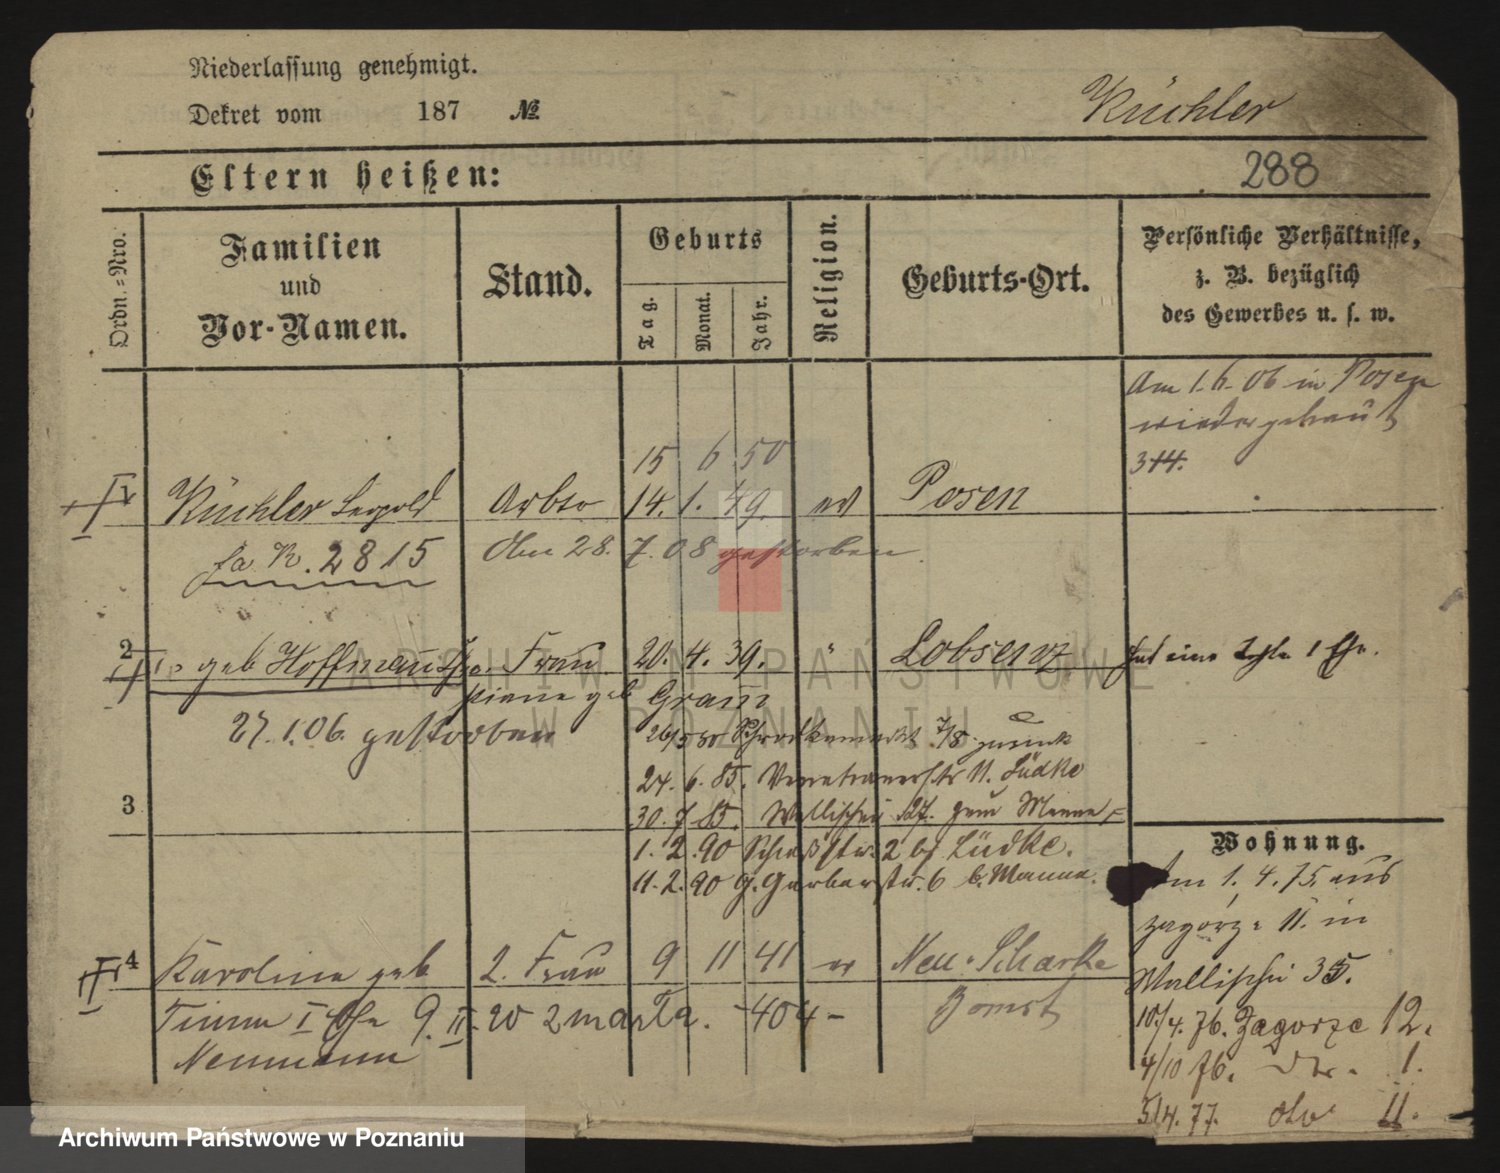 Niederlassung genehmigt.
Dekret vom 187 №
Küchler
Eltern heißen:
288
Ordn.-Nro.
Familien
und
Vor-Namen.
Stand.
Geburts
Tag.
Monat.
Jahr.
Religion.
Geburts-Ort.
Persönliche Verhältnisse,
z. B. bezüglich
des Gewerbes u. s. w.
Am 1.6.06 in Posen
wieder getraut
314.
15 6 50
1 Küchler Leopold Arbtr 14. 1. 49. ev Posen
fa K. 2815 Am 28. 7. 08 gestorben
2 geb Hoffmann Frau 20. 4. 39. " Lobsenz
hat eine 1 Ehe.
geb Graün
27.1.06. gestorben
26/5 80 Schrodkamarkt 7/8 zurück
24. 6. 85. Venetianerstr 11. Lüdke
3
30. 7 85. Wallischei 27. zum Manne
Wohnung.
1. 2. 90 Schießstr. 2 bj Lüdke.
11. 2. 90 g. Gerberstr. 6 b. Manne.
Am 1. 4. 75. aus
Zagorze 11. in
Wallischei 35.
4 Karoline geb 2. Frau 9 11 41 ev Neu-Scharke
Timm I Ehe 9. II. 20 2 marta. - 404 - Bomst
Neumann
10/4. 76. Zagorze 12.
4/10 76. do. 1.
5/4. 77. do 11.
ARCHIWUM PAŃSTWOWE
W POZNANIU
Archiwum Państwowe w Poznaniu